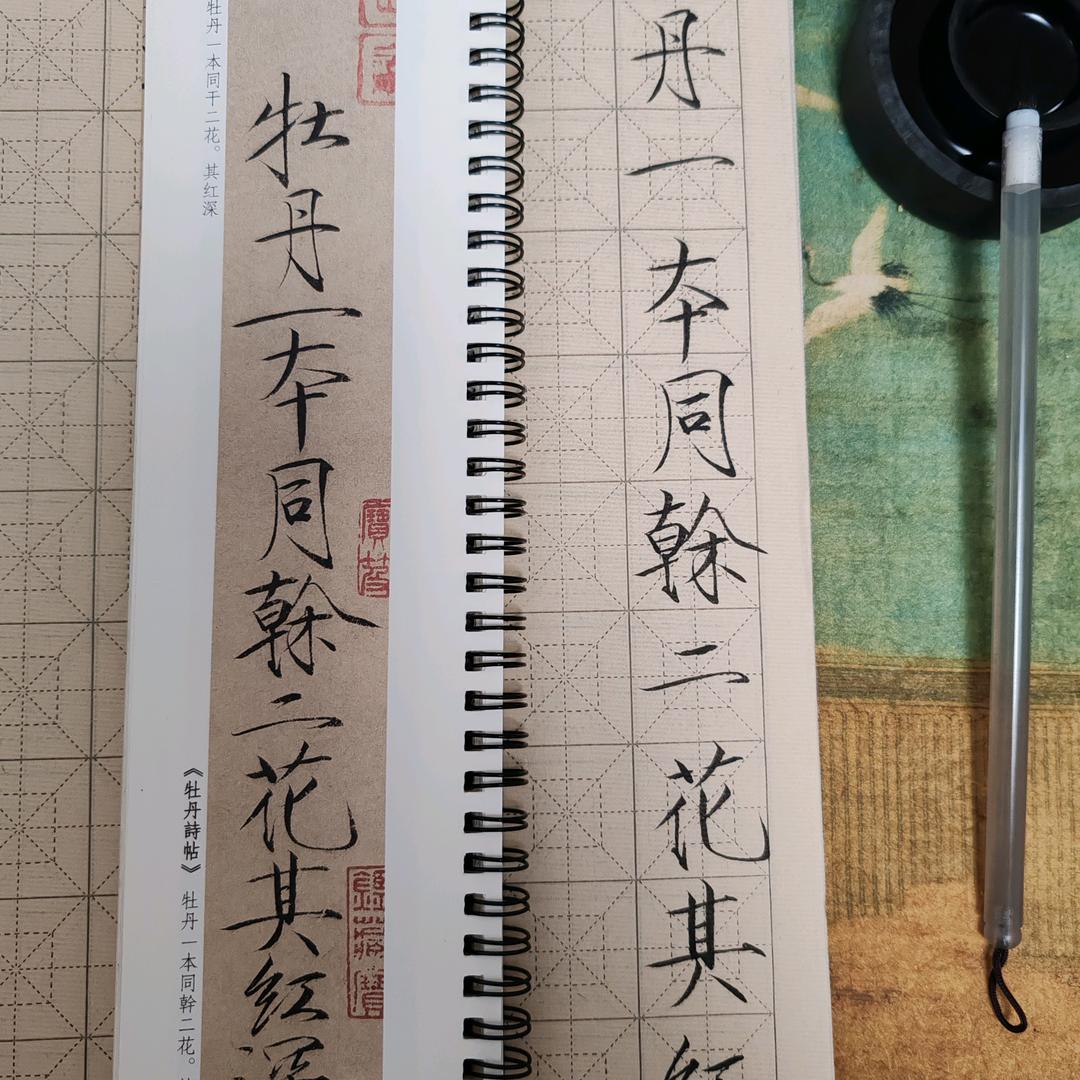 丹一夲同榦二花其紅
牡丹一夲同榦二花其紅深
牡丹一本同干二花。其红深
《牡丹詩帖》 牡丹一本同幹二花。